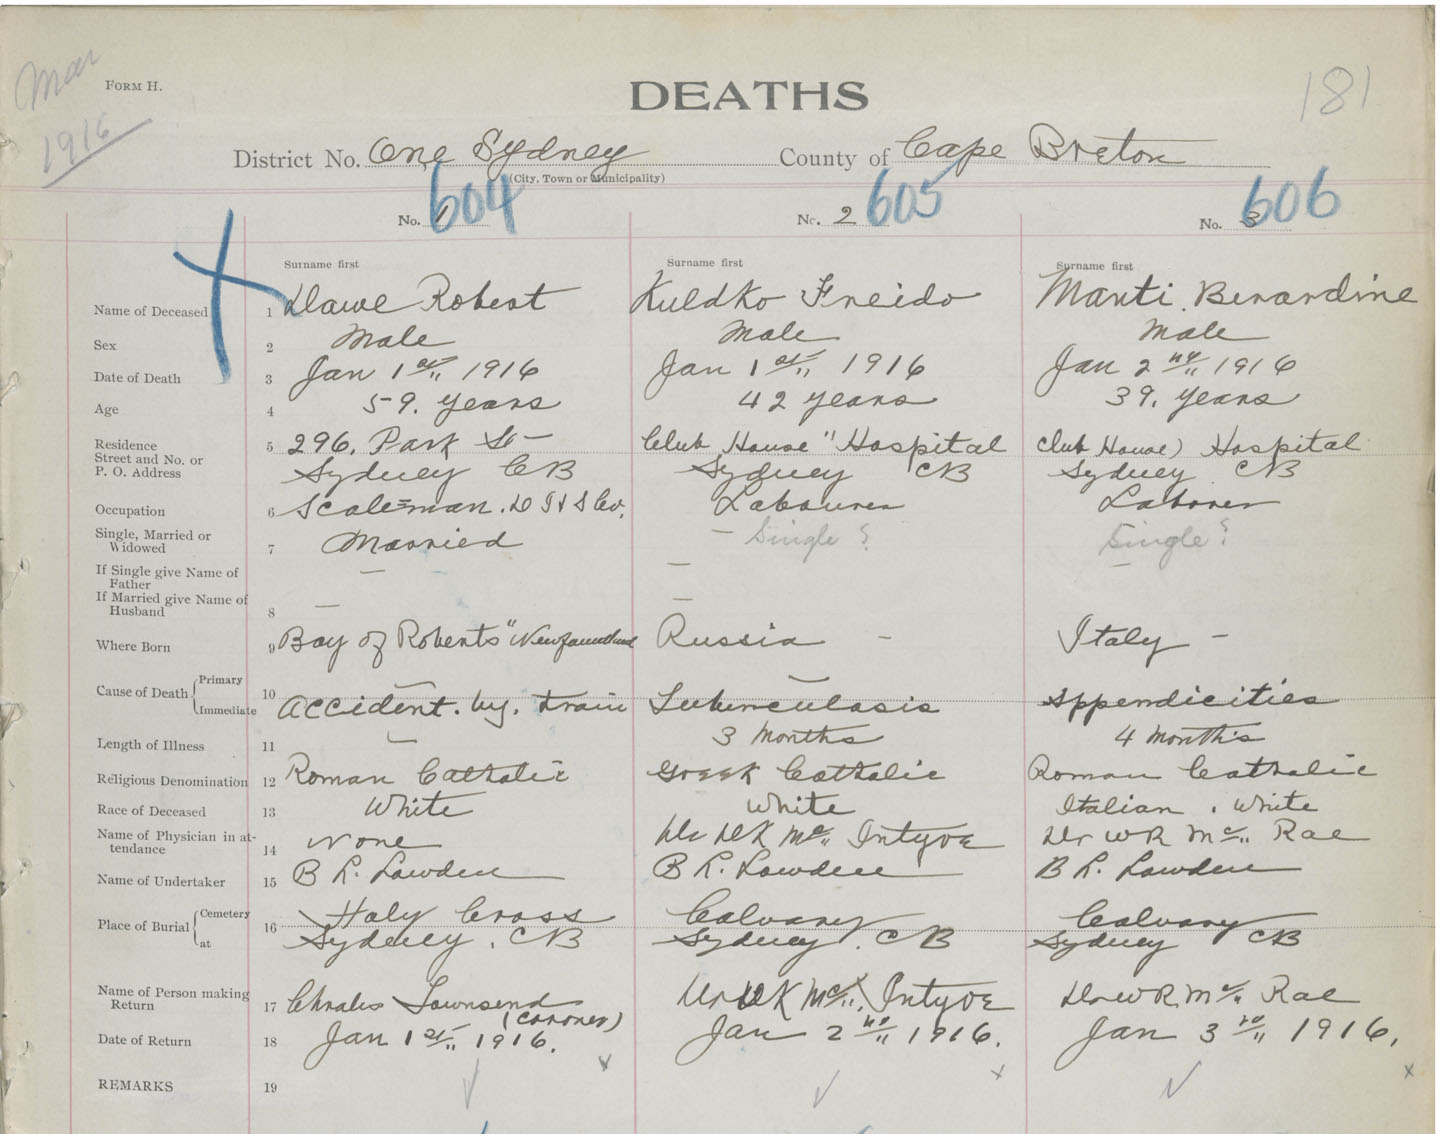 Mar
1916
FORM H.
DEATHS
181
District No. One Sydney County of Cape Breton
(City, Town or Municipality)
No. 1 604
No. 2 605
No. 3 606
Surname first
Surname first
Surname first
Name of Deceased 1 Dawe Robert Kuldko Freido Manti Berardine
Sex 2 Male Male Male
Date of Death 3 Jan 1st 1916 Jan 1st 1916 Jan 2nd 1916
Age 4 59. years 42 years 39. years
Residence 5 296. Park St - Club House " Hospital Club House) Hospital
Street and No. or
P. O. Address Sydney CB Sydney CB Sydney CB
Occupation 6 Scale=man. D I & S Co. Labourer Laborer
Single, Married or
Widowed 7 Married - Single ? Single ?
If Single give Name of
Father — —
If Married give Name of
Husband 8 — —
Where Born 9 Bay of Roberts " Newfoundland Russia - Italy -
Cause of Death { Primary
Immediate 10 Accident. by. train Tuberculosis Appendicities
Length of Illness 11 3 Months 4 months
Religious Denomination 12 Roman Catholic Greek Catholic Roman Catholic
Race of Deceased 13 White White Italian . White
Name of Physician in at-
tendance 14 None Dr D K Mc Intyre Dr W R Mc Rae
Name of Undertaker 15 B L. Lowden B L. Lowden B L. Lowden
Place of Burial { Cemetery 16 Holy Cross Calvary Calvary
at Sydney. CB Sydney. CB Sydney CB
Name of Person making
Return 17 Chrales Townsend Dr D K Mc Intyre Dr W R Mc Rae
(coroner)
Date of Return 18 Jan 1st 1916. Jan 2nd 1916. Jan 3rd 1916.
REMARKS 19